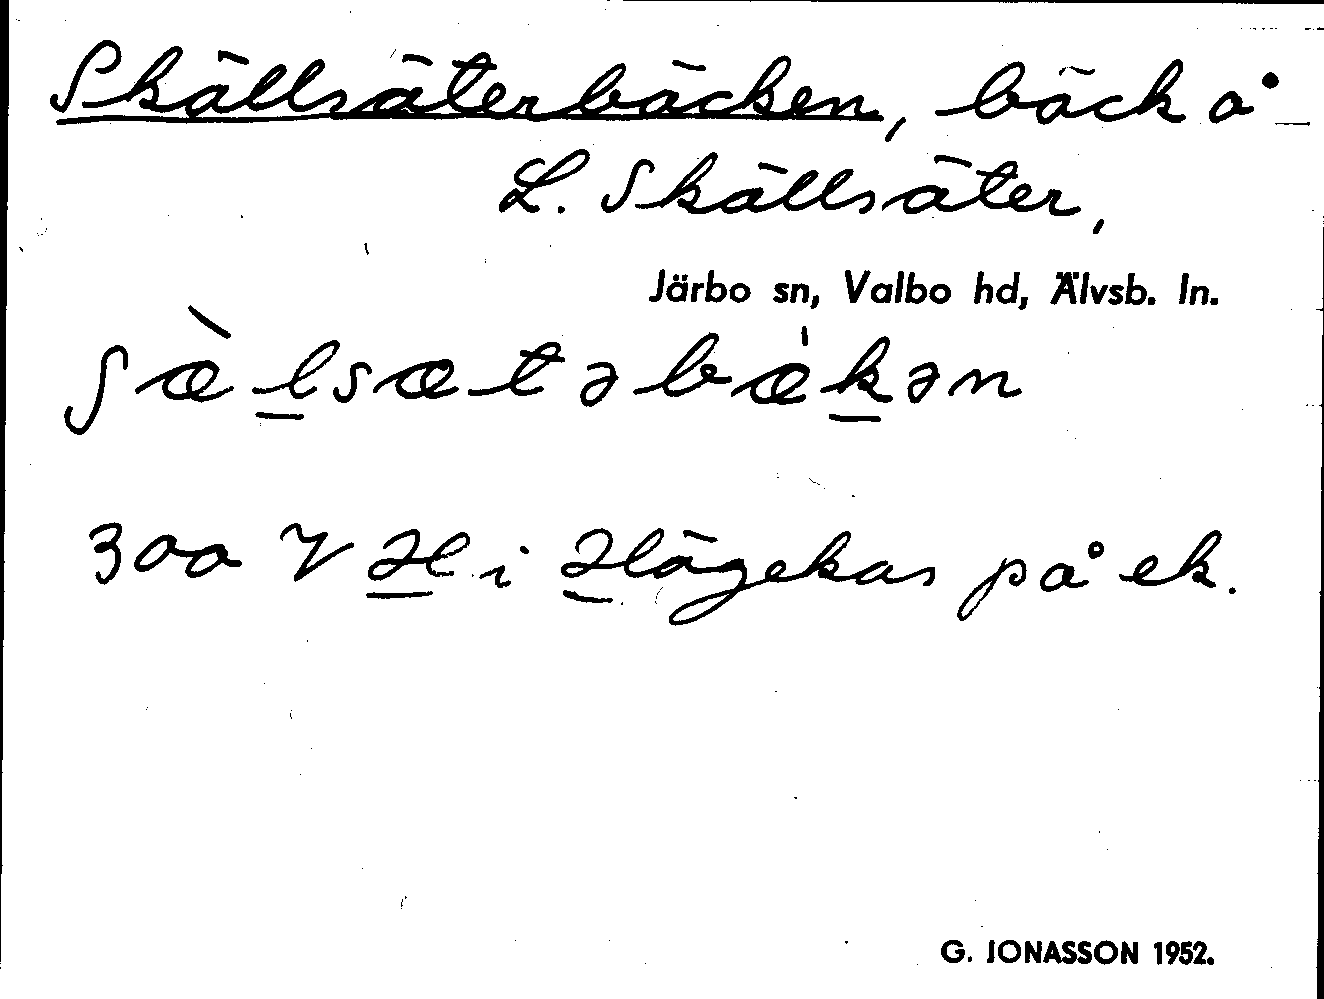 Skällsäterbäcken, bäck å
L. Skällsäter,
Järbo sn, Valbo hd, Älvsb. ln.
ʃæ̀l̲sætəbæ̍k̲ən
300 V H̲ i H̲ägekas på ek.
G. JONASSON 1952.